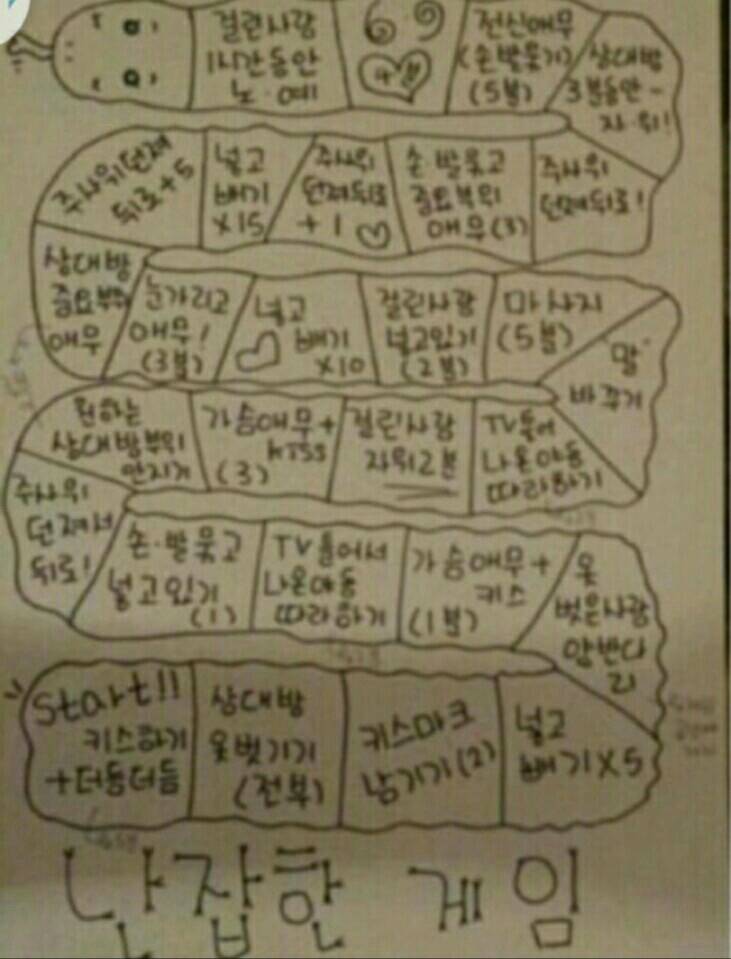 start!!
키스하기
+더듬더듬
상대방
옷벗기기
(전부)
키스마크
남기기(2)
넣고
빼기X5
옷
벗은사람
가슴애무+
키스
(1분)
TV틀어서
나온야동
따라하기
손·발묶고
넣고있기
(1)
주사위
던져서
뒤로!
원하는
상대방부위
만지기
가슴애무+
kiss
(3)
걸린사람
자위2분
TV틀어
나온야동
따라하기
"말"
바꾸기
마사지
(5분)
걸린사람
넣고있기
(2분)
넣고
빼기
X10
눈가리고
애무!
(3분)
상대방
중요부위
애무
주사위던져
뒤로+5
넣고
빼기
X15
주사위
던져뒤로
+1
손·발묶고
중요부위
애무(3)
주사위
던져뒤로!
상대방
3분동안
자·위!
전신애무
(손발묶기)
(5분)
69
걸린사람
1시간동안
노·예
난잡한 게임